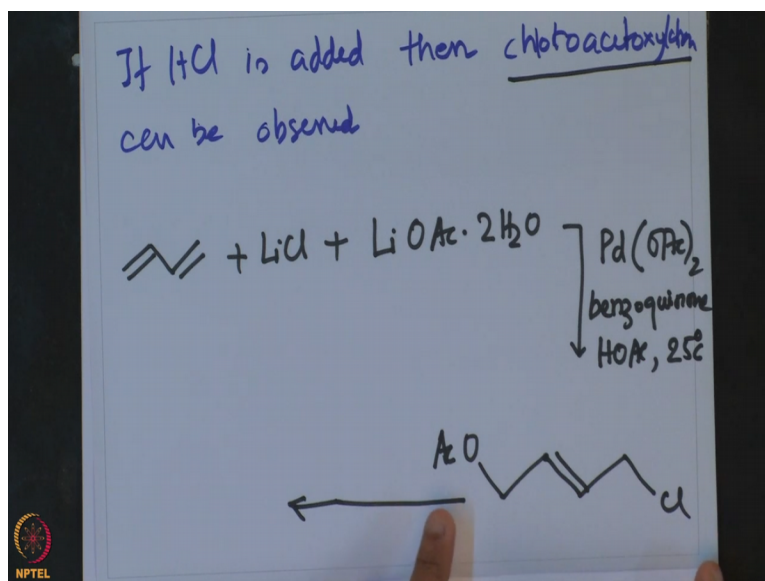 If HCl is added then chloroacetoxylation
can be observed
+ LiCl + LiOAc·2H₂O
Pd(OAc)₂
benzoquinone
HOAc, 25°C
AcO
Cl
NPTEL